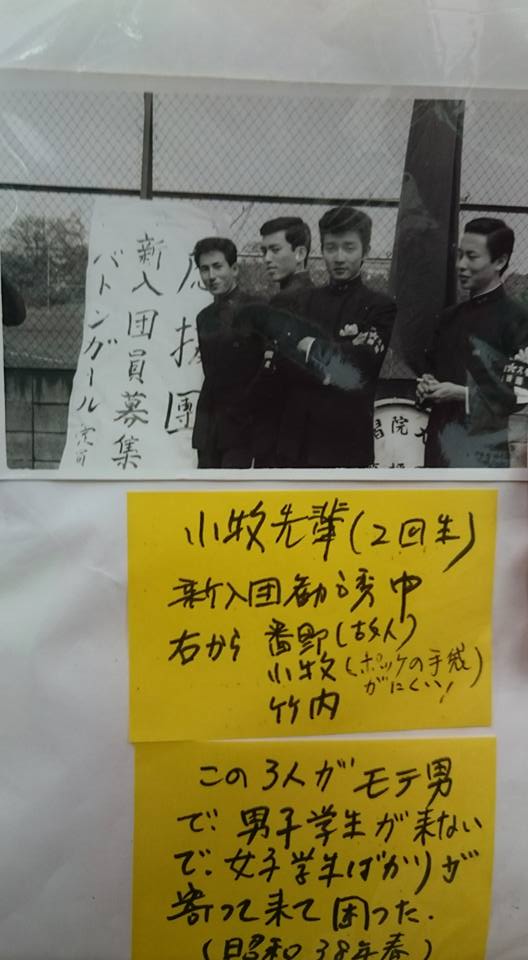 應援團
新入団員募集
バトンガール
習院
小牧先輩(2回生)
新入団勧誘中
右から 番野(故人)
小牧(ポッケの手袋
がにくい!)
竹内
この3人がモテ男
で、男子学生が来ない
で、女子学生ばかりが
寄って来て困った.
(昭和38年春)